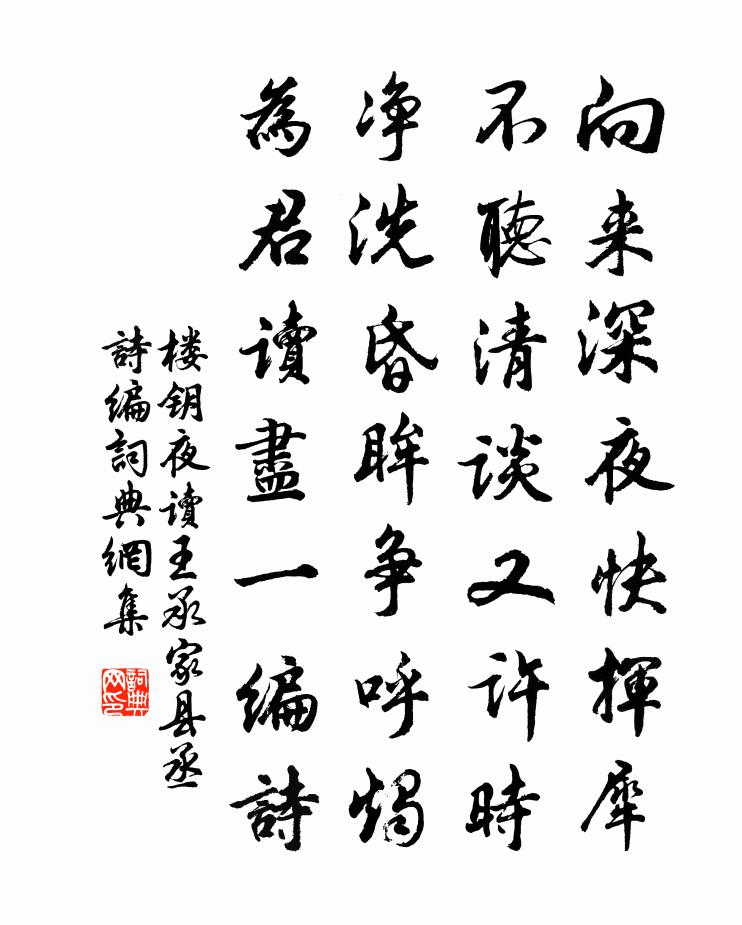 向来深夜快揮犀
不聽清談又許時
净洗昏眸争呼燭
為君讀盡一編詩
楼钥夜读王承家县丞
詩編詞典網集
詞典网印